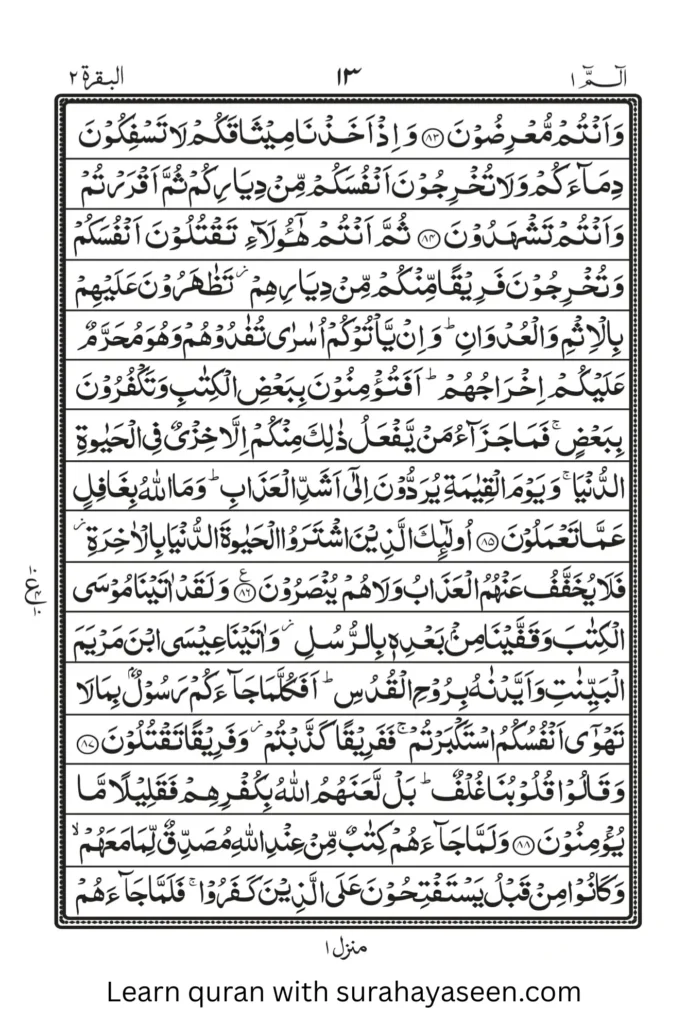 الٓمّٓ ١ ١٣ البقرة ٢
وَاَنْتُمْ مُّعْرِضُوْنَ ﴿٨٣﴾ وَاِذْ اَخَذْنَا مِيْثَاقَكُمْ لَا تَسْفِكُوْنَ
دِمَآءَكُمْ وَلَا تُخْرِجُوْنَ اَنْفُسَكُمْ مِّنْ دِيَارِكُمْ ثُمَّ اَقْرَرْتُمْ
وَاَنْتُمْ تَشْهَدُوْنَ ﴿٨٤﴾ ثُمَّ اَنْتُمْ هٰٓؤُلَآءِ تَقْتُلُوْنَ اَنْفُسَكُمْ
وَتُخْرِجُوْنَ فَرِيْقًا مِّنْكُمْ مِّنْ دِيَارِهِمْ ز تَظٰهَرُوْنَ عَلَيْهِمْ
بِالْاِثْمِ وَالْعُدْوَانِ ؕ وَاِنْ يَّاْتُوْكُمْ اُسٰرٰى تُفٰدُوْهُمْ وَهُوَ مُحَرَّمٌ
عَلَيْكُمْ اِخْرَاجُهُمْ ؕ اَفَتُؤْمِنُوْنَ بِبَعْضِ الْكِتٰبِ وَتَكْفُرُوْنَ
بِبَعْضٍ ۚ فَمَا جَزَآءُ مَنْ يَّفْعَلُ ذٰلِكَ مِنْكُمْ اِلَّا خِزْىٌ فِى الْحَيٰوةِ
الدُّنْيَا ۚ وَيَوْمَ الْقِيٰمَةِ يُرَدُّوْنَ اِلٰٓى اَشَدِّ الْعَذَابِ ؕ وَمَا اللّٰهُ بِغَافِلٍ
عَمَّا تَعْمَلُوْنَ ﴿٨٥﴾ اُولٰٓئِكَ الَّذِيْنَ اشْتَرَوُا الْحَيٰوةَ الدُّنْيَا بِالْاٰخِرَةِ ز
فَلَا يُخَفَّفُ عَنْهُمُ الْعَذَابُ وَلَا هُمْ يُنْصَرُوْنَ ﴿٨٦﴾ ع وَلَقَدْ اٰتَيْنَا مُوْسَى
الْكِتٰبَ وَقَفَّيْنَا مِنْۢ بَعْدِهٖ بِالرُّسُلِ ز وَاٰتَيْنَا عِيْسَى ابْنَ مَرْيَمَ
الْبَيِّنٰتِ وَاَيَّدْنٰهُ بِرُوْحِ الْقُدُسِ ؕ اَفَكُلَّمَا جَآءَكُمْ رَسُوْلٌۢ بِمَا لَا
تَهْوٰٓى اَنْفُسُكُمُ اسْتَكْبَرْتُمْ ۚ فَفَرِيْقًا كَذَّبْتُمْ ز وَفَرِيْقًا تَقْتُلُوْنَ ﴿٨٧﴾
وَقَالُوْا قُلُوْبُنَا غُلْفٌ ؕ بَلْ لَّعَنَهُمُ اللّٰهُ بِكُفْرِهِمْ فَقَلِيْلًا مَّا
يُؤْمِنُوْنَ ﴿٨٨﴾ وَلَمَّا جَآءَهُمْ كِتٰبٌ مِّنْ عِنْدِ اللّٰهِ مُصَدِّقٌ لِّمَا مَعَهُمْ ۙ
وَكَانُوْا مِنْ قَبْلُ يَسْتَفْتِحُوْنَ عَلَى الَّذِيْنَ كَفَرُوْا ۚ فَلَمَّا جَآءَهُمْ
منزل ١
Learn quran with surahayaseen.com